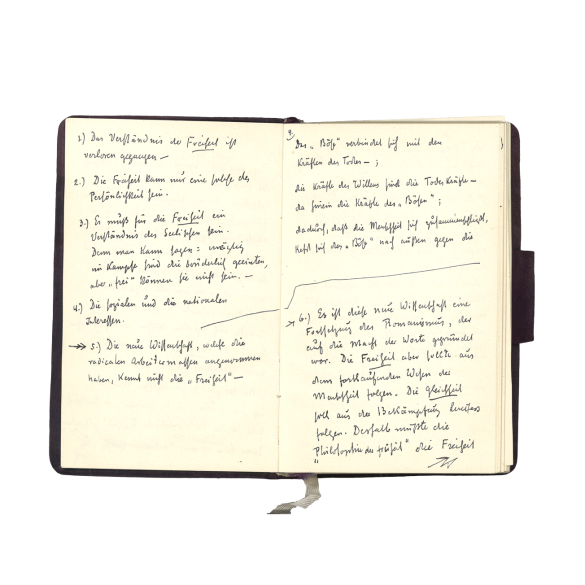 1.) Das Verständnis der Freiheit ist
verloren gegangen —
2.) Die Freiheit kann nur eine solche der
Persönlichkeit sein.
3.) Es muß für die Freiheit ein
Verständnis des Seelischen sein.
Denn man kann sagen:
im Kampfe sind die
aber „frei" können sie nicht sein. —
4.) Die sozialen und die nationalen
Interessen.
5.) Die neue Wissenschaft, welche die
radicalen Arbeitermassen angenommen
haben, kennt nicht die „Freiheit" —
Das „Böse" verbindet sich mit den
Kräften des Todes — ;
die Kräfte des Willens sind die Todeskräfte —
da hinein die Kräfte des „Bösen" ;
dadurch, daß die Menschheit sich
sich das „Böse" nach außen gegen die
6.) Es ist diese neue Wissenschaft eine
Fortsetzung des Romanismus, der
auf die Macht der Worte gegründet
war. Die Freiheit aber sollte aus
dem fortlaufenden Wesen der
Menschheit folgen. Die Gleichheit
soll aus der Bekämpfung
folgen. Deshalb mußte die
„Philosophie der Freiheit" die Freiheit